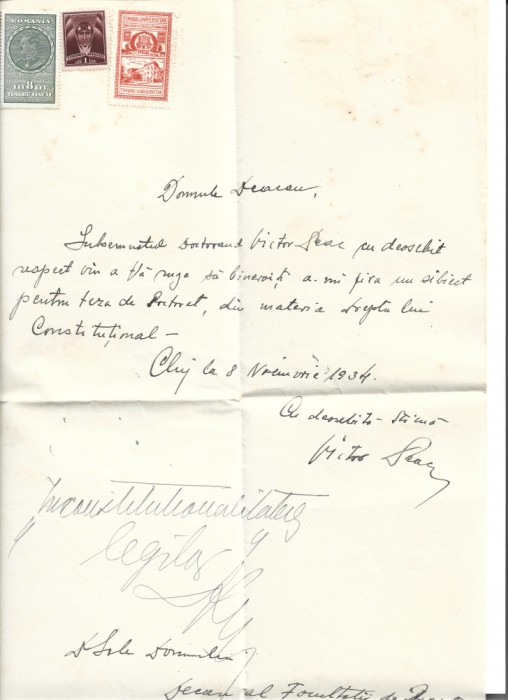 ROMANIA
8 LEI 8
TIMBRU FISCAL
1 LEU
Domnule Decan,
Subsemnatul Doctorand Victor cu deosebit
respect vin a Vă ruga să binevoiți a-mi fixa un subiect
pentru teza de Doctorat, din materia Dreptului
Constituțional –
Cluj la 8 Noimvrie 1934.
Cu deosebită stimă
Victor
"Inconstituționalitatea
legilor"
D Sale Domnului
Decan al Facultății de